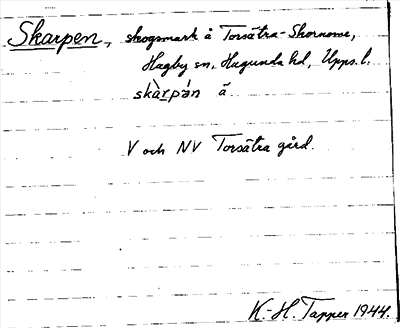 Skarpen, skogsmark å Torsätra-Skornome,
Hagby sn, Hagunda hd, Upps. l.
skàrpə́n ã
V och NV Torsätra gård.
K.-H. Tapper 1944.